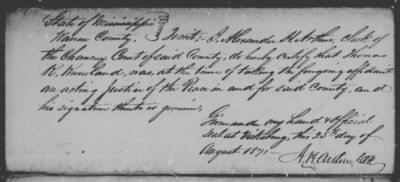 State of Mississippi
Warren County, To wit: I, Alexander H. Arthur, clerk of
the Chancery Court of said County, do hereby certify that Thomas
K. was, at the time of taking the forgoing affidavit
an acting Justice of the Peace in and for said County, and
his signature thereto is genuine.
Given under my hand & official
seal at Vicksburg, this 23rd day of
August 1871.
A. H. Arthur, Clk